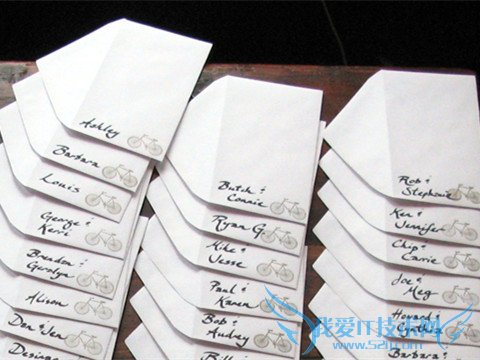 Ashley
Barbara
Louis
George &
Kerri
Brendan
Carolyn
Alison
Dan & Jen
Butch &
Connie
Ryan G.
Mike &
Jesse
Paul &
Karen
Bob &
Audrey
Rob &
Stephanie
Ken &
Jennifer
Chip &
Carrie
Joe &
Meg
Howard &
Barbara &
我爱IT技术网
www.52ij.com